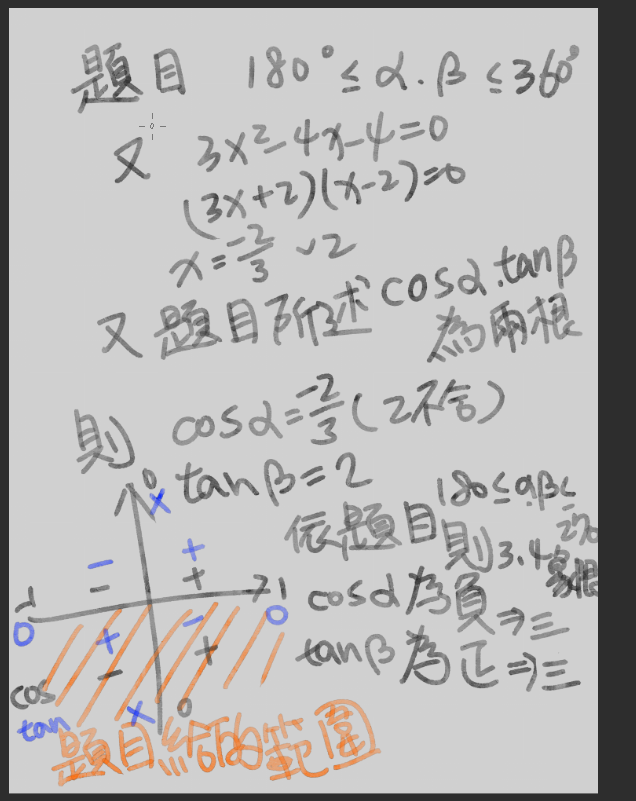 題目 180°≤α.β≤360°
又 3x²-4x-4=0
(3x+2)(x-2)=0
x=-2/3、2
又題目所述cosα.tanβ
為兩根
則 cosα=-2/3(2不合)
tanβ=2
依題目180≤αβ≤
則3.4象限
cosα為負⇒三
tanβ為正⇒三
0
x
- +
- +
-1 1
0 0
+ -
- +
cos
tan x 0
題目給的範圍